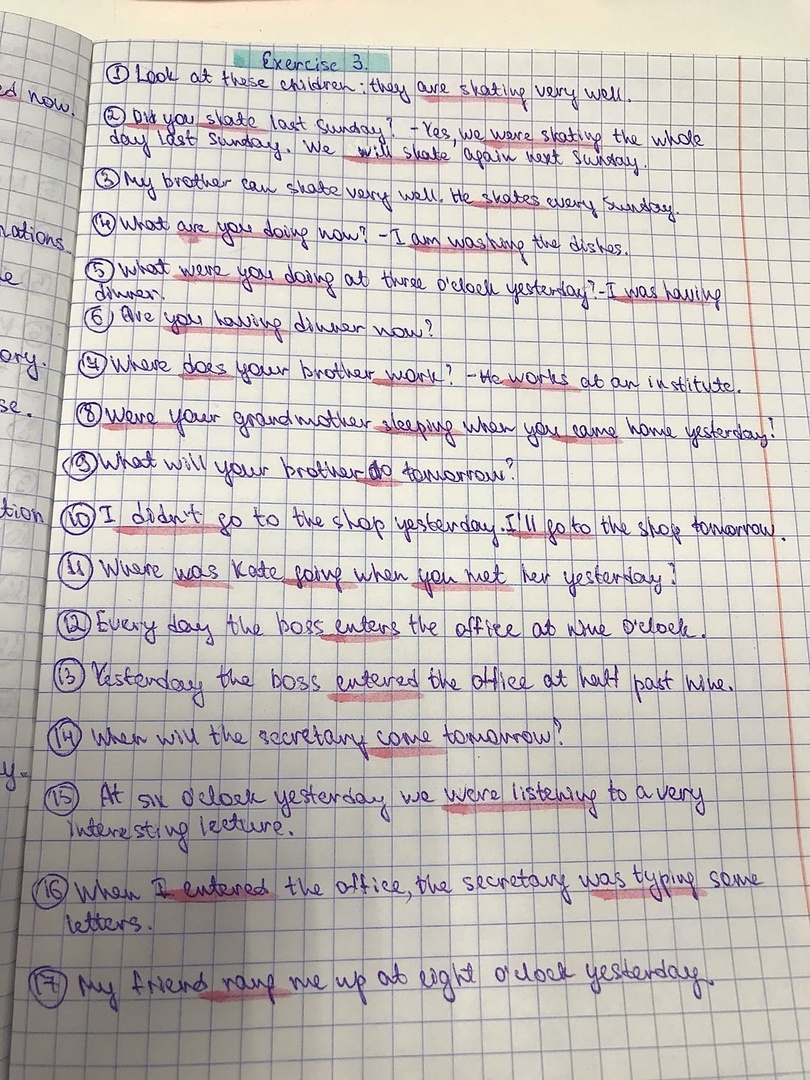 Exercise 3.
① Look at these children: they are skating very well.
② Did you skate last Sunday? - Yes, we were skating the whole
day last Sunday. We will skate again next Sunday.
③ My brother can skate very well. He skates every Sunday.
④ What are you doing now? - I am washing the dishes.
⑤ What were you doing at three o'clock yesterday? - I was having
dinner.
⑥ Are you having dinner now?
⑦ Where does your brother work? - He works at an institute.
⑧ Were your grandmother sleeping when you came home yesterday?
⑨ What will your brother do tomorrow?
⑩ I didn't go to the shop yesterday. I'll go to the shop tomorrow.
⑪ Where was Kate going when you met her yesterday?
⑫ Every day the boss enters the office at nine o'clock.
⑬ Yesterday the boss entered the office at half past nine.
⑭ When will the secretary come tomorrow?
⑮ At six o'clock yesterday we were listening to a very
interesting lecture.
⑯ When I entered the office, the secretary was typing some
letters.
⑰ My friend rang me up at eight o'clock yesterday.
now.
ory.
tion